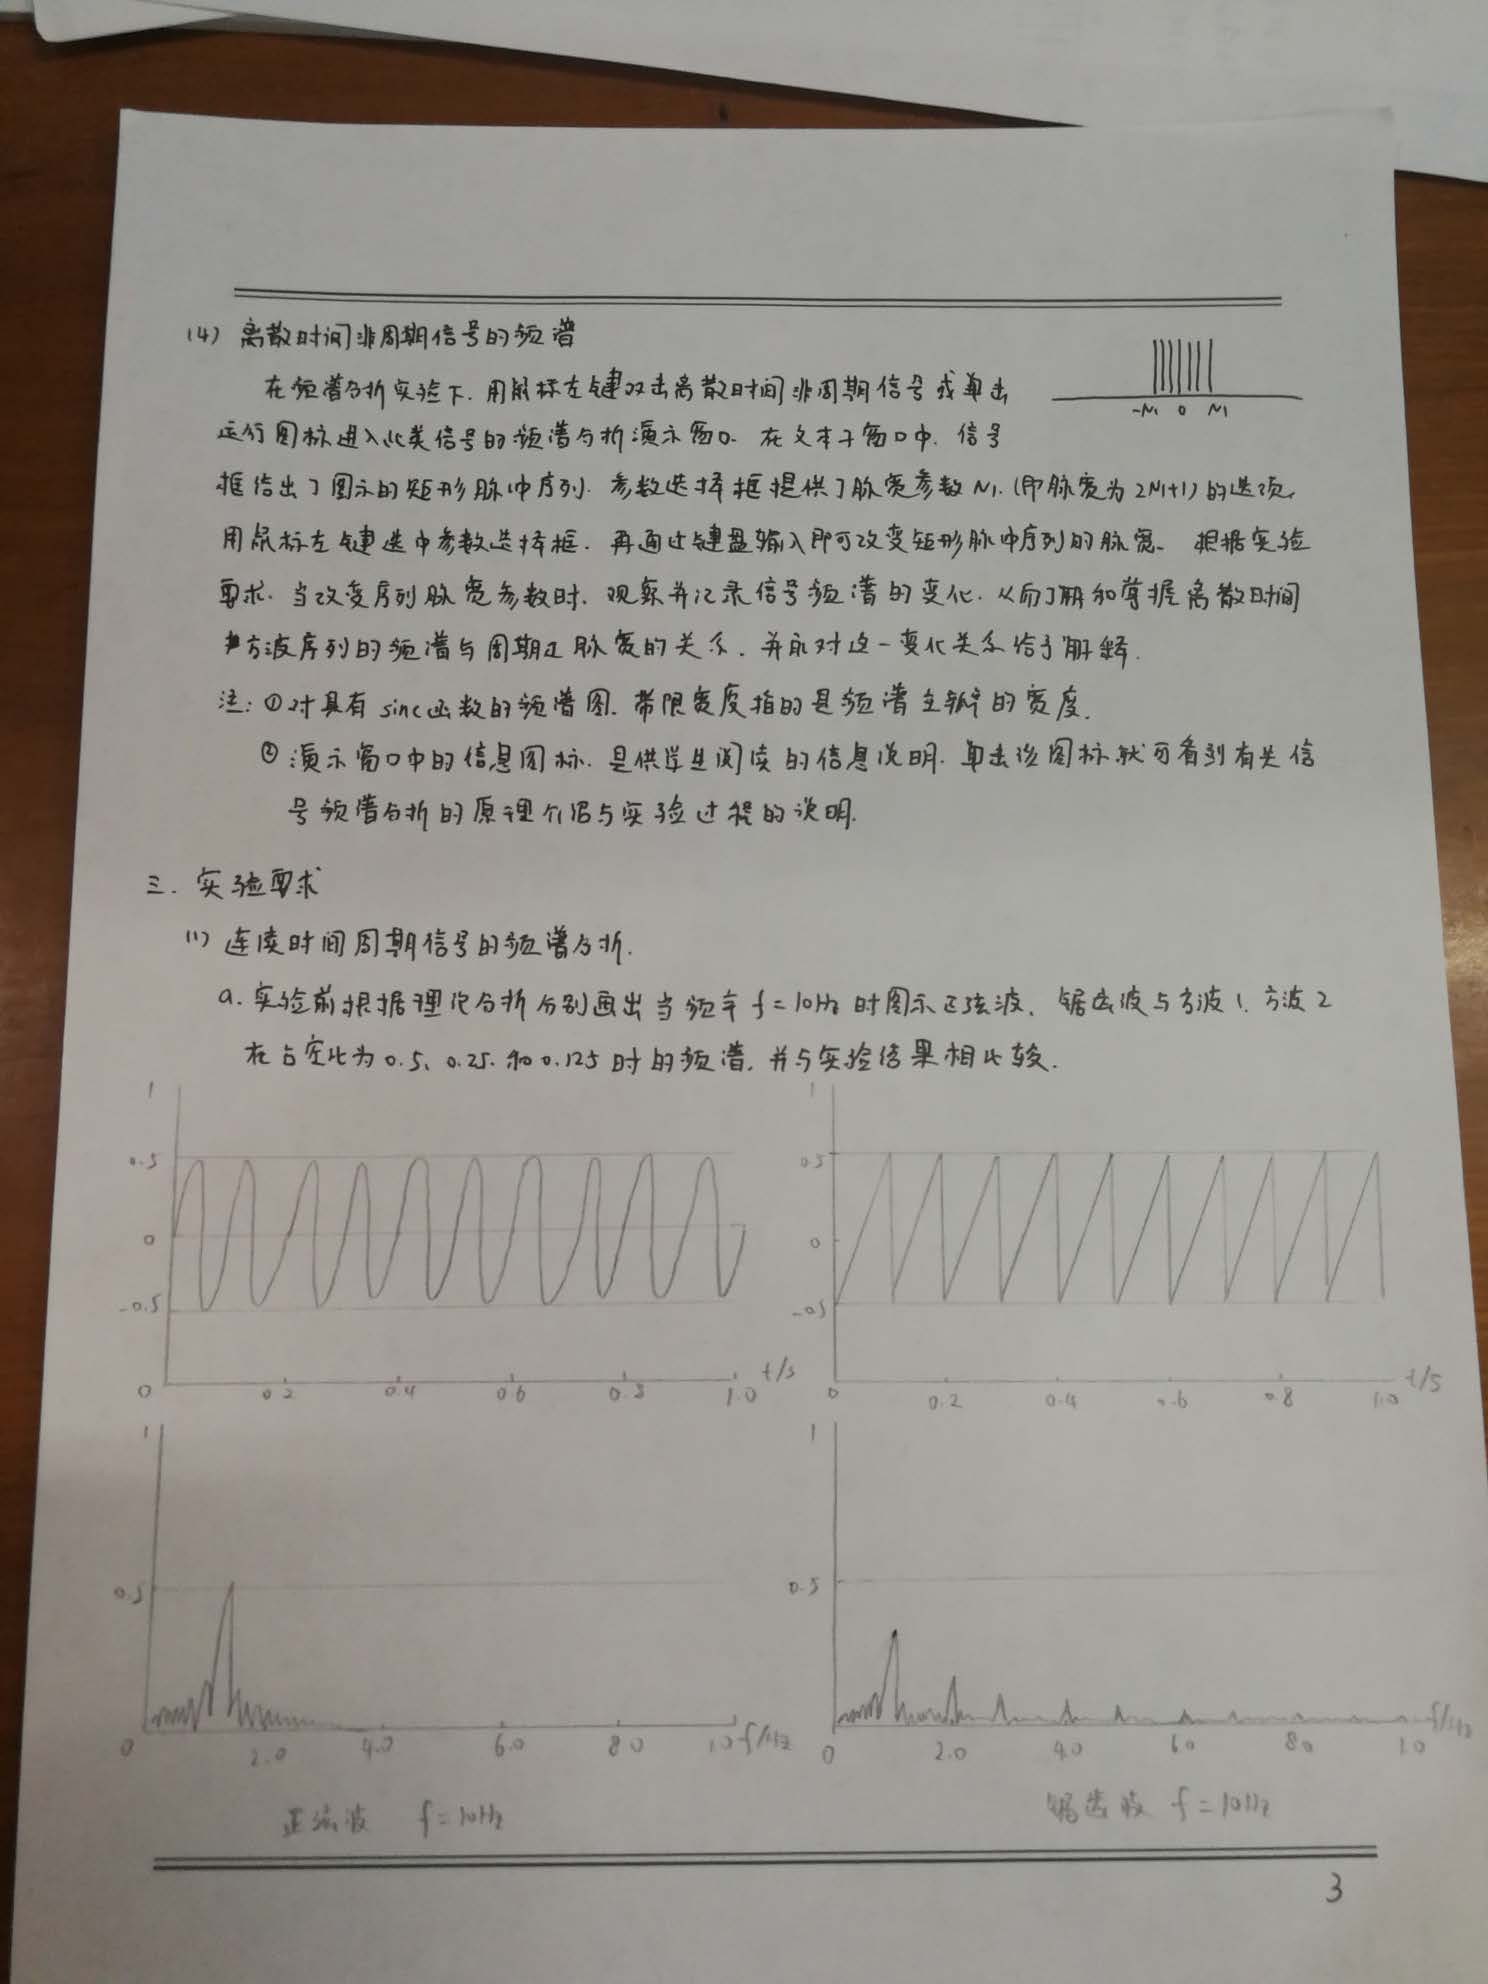 (4) 离散时间非周期信号的频谱
在频谱分析实验下.用鼠标左键双击离散时间非周期信号或单击
-N1 0 N1
运行图标进入此类信号的频谱分析演示窗口.在文本子窗口中.信号
框给出了图示的矩形脉冲序列.参数选择框提供了脉宽参数N1.(即脉宽为2N1+1)的选项,
用鼠标左键选中参数选择框.再通过键盘输入即可改变矩形脉冲序列的脉宽.根据实验
要求.当改变序列脉宽参数时.观察并记录信号频谱的变化.从而了解和掌握离散时间
方波序列的频谱与周期及脉宽的关系.并对这一变化关系给予解释.
注:①对具有sinc函数的频谱图.带限宽度指的是频谱主瓣的宽度.
②演示窗口中的信息图标.是供学生阅读的信息说明.单击该图标就可看到有关信
号频谱分析的原理介绍与实验过程的说明.
三.实验要求
(1)连续时间周期信号的频谱分析.
a.实验前根据理论分析分别画出当频率f=10Hz时图示正弦波.锯齿波与方波1.方波2
在占空比为0.5、0.25.和0.125时的频谱.并与实验结果相比较.
1 1
0.5 0.5
0 0
-0.5 -0.5
0 0.2 0.4 0.6 0.8 1.0 t/s 0 0.2 0.4 0.6 0.8 1.0 t/s
1 1
0.5 0.5
0 2.0 4.0 6.0 8.0 10 f/Hz 0 2.0 4.0 6.0 8.0 10 f/Hz
正弦波 f=10Hz 锯齿波 f=10Hz
3